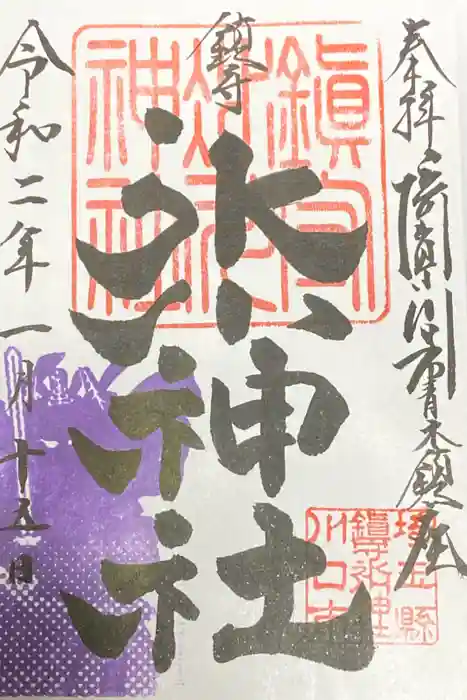 奉拝 埼玉県川口市青木鎮座
鎮守
氷川神社
令和二年一月十五日
鎮守
氷川
神社
埼玉縣
鎮守氷川神社
川口市